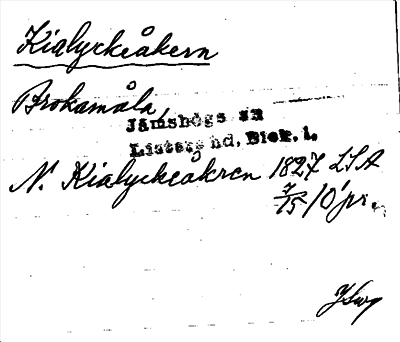 Kialyckeåkern
Brokamåla,
Jämshögs sn
Listers hd, Blek. l.
N. Kialyckeåkren 1827 LSA
7/15 / Ö pr.